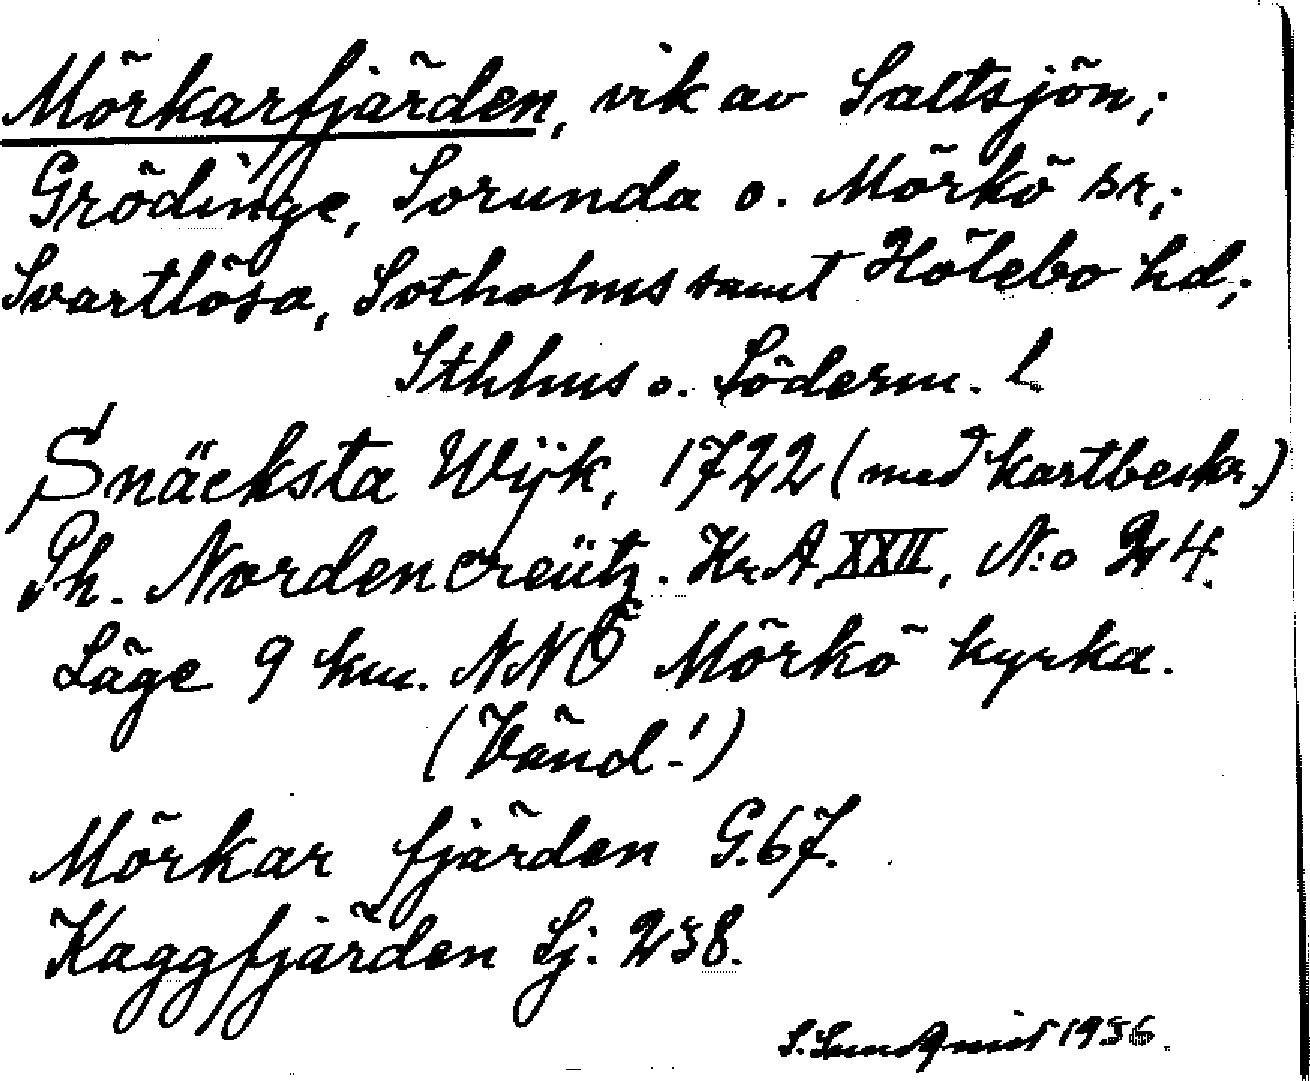 Mörkarfjärden, vik av Saltsjön;
Grödinge, Sorunda o. Mörkö sn;
Svartlösa, Sotholms samt Hölebo hd;
Sthlms o. Söderm. l
Snäcksta Wijk, 1722 (med kartbeskr.)
Ph. Nordencreütz. Kr.A. XXII, N:o 24.
Läge 9 km. NNÖ Mörkö kyrka.
(Vänd!)
Mörkar fjärden G.67.
Kaggfjärden Sj: 238.
S. Sundqvist 1936.